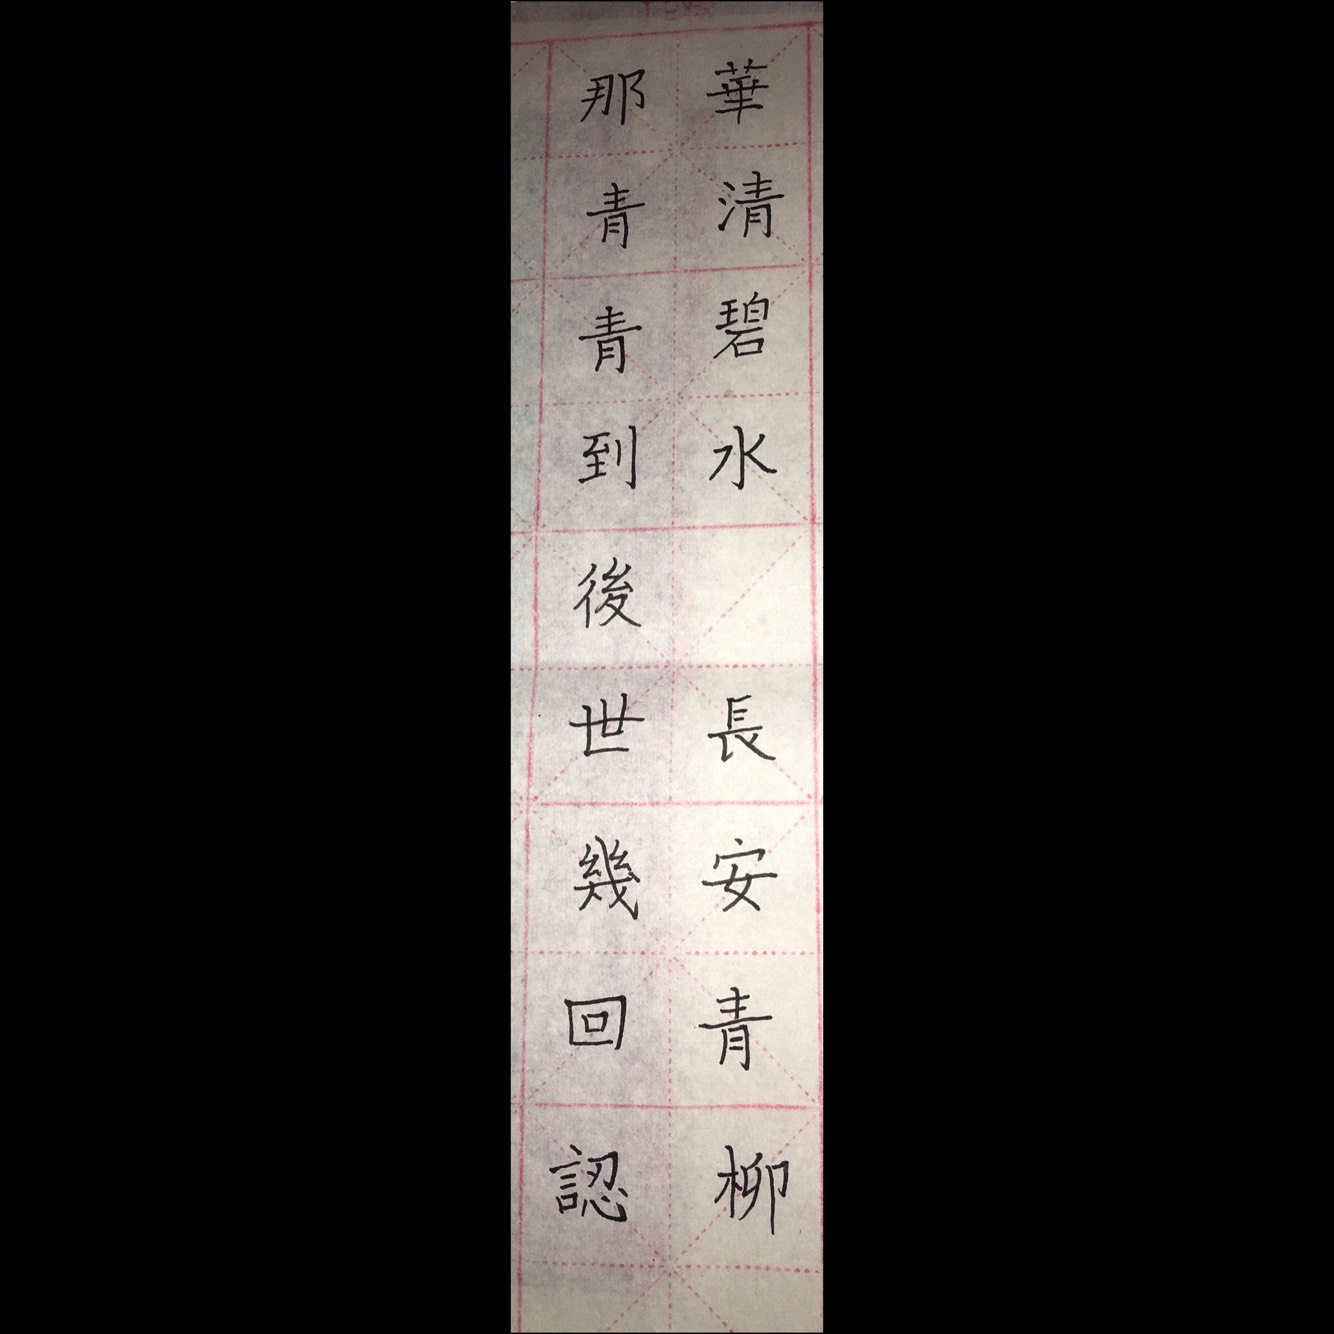 華清碧水 長安青柳
那青青到後世幾回認